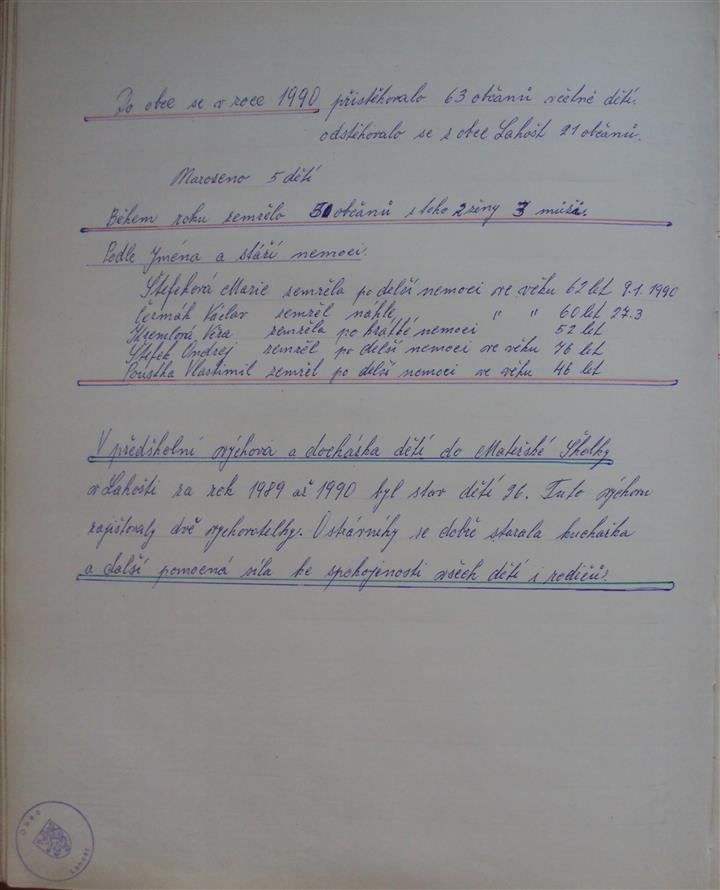 Do obce se v roce 1990 přistěhovalo 63 občanů včetně dětí.
odstěhovalo se z obce Lahošť 21 občanů.
Narozeno 5 dětí
Během roku zemřelo 5 občanů z toho 2 ženy 3 muži.
Podle Jména a stáří nemoci.
Štefeková Marie zemřela po delší nemoci ve věku 62 let 9.1.1990
Čermák Václav zemřel náhle " " 60 let 27.3
Kremlová Věra zemřela po krátké nemoci 52 let
Štefek Ondřej zemřel po delší nemoci ve věku 76 let
Poustka Vlastimil zemřel po delší nemoci ve věku 46 let
V předškolní výchova a docházka dětí do Mateřské Školky
v Lahošti za rok 1989 až 1990 byl stav dětí 26. Tuto výchovu
zajišťovaly dvě vychovatelky. O strávníky se dobře starala kuchařka
a další pomocná síla ke spokojenosti všech dětí i rodičů.
Obec
Lahošť